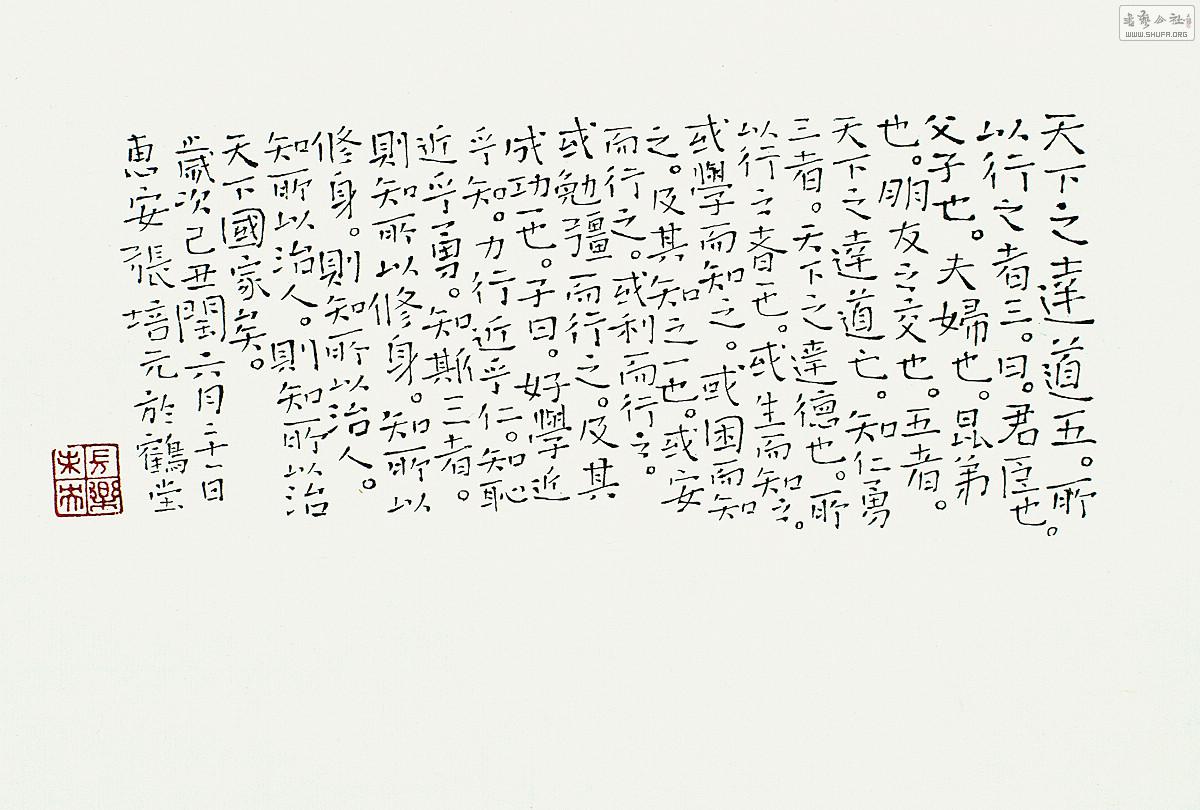 天下之達道五。所
以行之者三。曰。君臣也。
父子也。夫婦也。昆弟
也。朋友之交也。五者。
天下之達道也。知仁勇
三者。天下之達德也。所
以行之者一也。或生而知之。
或學而知之。或困而知
之。及其知之一也。或安
而行之。或利而行之。
或勉彊而行之。及其
成功一也。子曰。好學近
乎知。力行近乎仁。知恥
近乎勇。知斯三者。
則知所以修身。知所以
修身。則知所以治人。
知所以治人。則知所以治
天下國家矣。
歲次己丑閏六月二十一日
惠安張培元於鶴堂
長樂未央
書藝公社
WWW.SHUFA.ORG